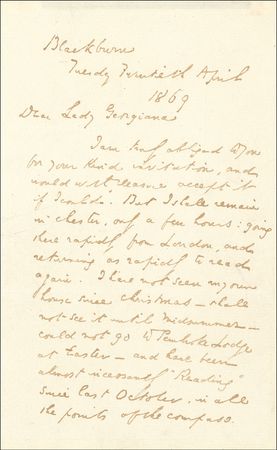 Blackburn
Tuesday Twentieth April
1869
Dear Lady Georgiana
I am truly obliged to you
for your kind invitation, and
would with pleasure accept it
if I could. But I shall remain
in Chester, only a few hours: going
there rapidly from London, and
returning as rapidly to read
again. I have not seen my own
house since Christmas – shall
not see it until Midsummer –
could not go to Pembroke Lodge
at Easter – and have been
almost incessantly "Reading"
since last October, in all
the points of the compass.